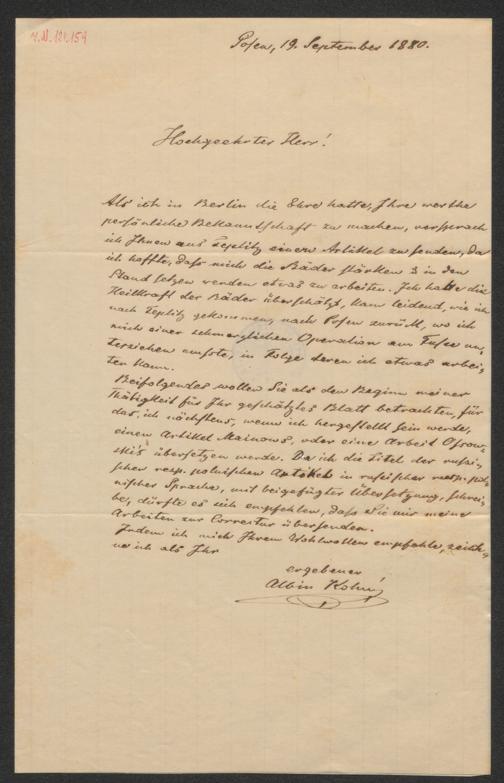 I.N. 121.159
Posen, 19. September 1880.
Hochgeehrter Herr!
Als ich in Berlin die Ehre hatte, Ihre werthe
persönliche Bekanntschaft zu machen, versprach
ich Ihnen aus Teplitz einen Artikel zu senden, da
ich hoffte, daß mich die Bäder stärken & in den
Stand setzen werden etwas zu arbeiten. Ich hatte die
Heilkraft der Bäder überschätzt, kam leidend, wie ich
nach Teplitz gekommen, nach Posen zurück, wo ich
mich einer schmerzlichen Operation am Fuße un-
terziehen mußte, in Folge deren ich etwas arbei-
ten kann.
Beifolgendes wollen Sie als den Beginn meiner
Thätigkeit für Ihr geschätztes Blatt betrachten, für
das, ich nächstens, wenn ich hergestellt sein werde,
einen Artikel Mainows, oder eine Arbeit Ossow-
skis übersetzen werde. Da ich die Titel der russi-
schen resp. polnischen Artikel in russischer resp. pol-
nischer Sprache, mit beigefügter Übersetzung, schrei-
be, dürfte es sich empfehlen, daß Sie mir meine
Arbeiten zur Correctur übersenden.
Indem ich mich Ihrem Wohlwollen empfehle, zeich-
ne ich als Ihr
ergebener
Albin Kohn